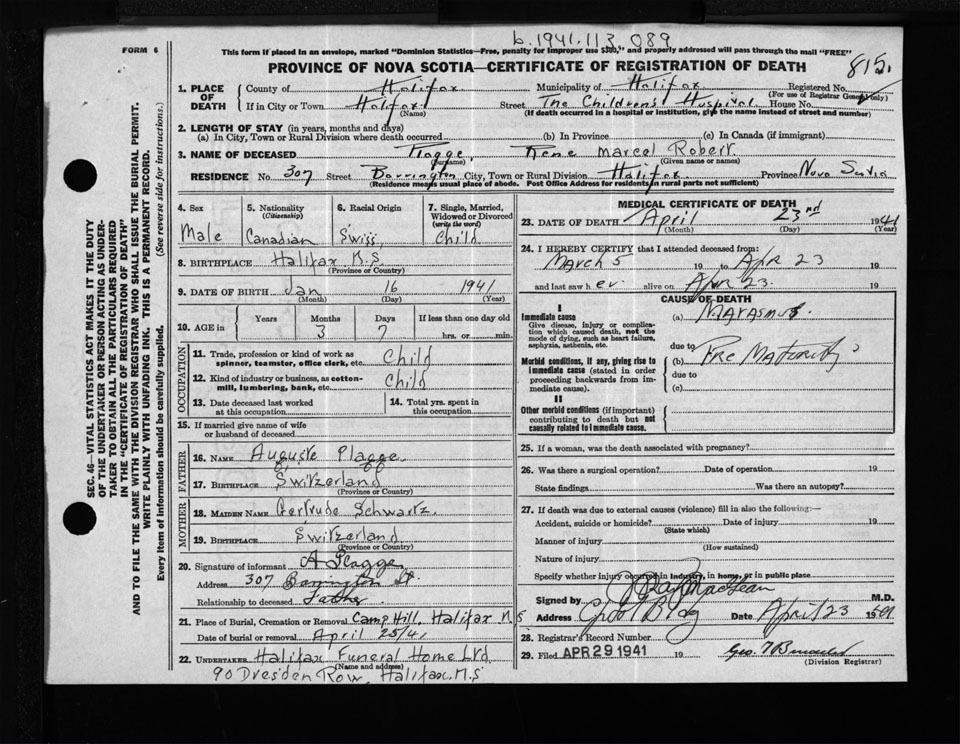 b.1941.113 089
FORM 6
This form if placed in an envelope, marked "Dominion Statistics—Free, penalty for improper use $300," and properly addressed will pass through the mail "FREE"
PROVINCE OF NOVA SCOTIA—CERTIFICATE OF REGISTRATION OF DEATH
815.
SEC. 46—VITAL STATISTICS ACT MAKES IT THE DUTY
OF THE UNDERTAKER OR PERSON ACTING AS UNDER-
TAKER TO OBTAIN ALL THE PARTICULARS REQUIRED
IN THE "CERTIFICATE OF REGISTRATION OF DEATH"
AND TO FILE THE SAME WITH THE DIVISION REGISTRAR WHO SHALL ISSUE THE BURIAL PERMIT.
WRITE PLAINLY WITH UNFADING INK. THIS IS A PERMANENT RECORD.
Every item of information should be carefully supplied. (See reverse side for instructions.)
1. PLACE OF DEATH County of Halifax Municipality of Halifax Registered No.
(For use of Registrar General only)
If in City or Town Halifax Street The Children's Hospital House No.
(Name) (If death occurred in a hospital or institution, give the name instead of street and number)
2. LENGTH OF STAY (in years, months and days)
(a) In City, Town or Rural Division where death occurred (b) In Province (c) In Canada (if immigrant)
3. NAME OF DECEASED Plagge, Rene Marcel Robert.
(Surname) (Given name or names)
RESIDENCE No. 307 Street Barrington City, Town or Rural Division Halifax Province Nova Scotia
(Residence means usual place of abode. Post Office Address for residents in rural parts not sufficient)
4. Sex 5. Nationality (Citizenship) 6. Racial Origin 7. Single, Married, Widowed or Divorced (write the word)
Male Canadian Swiss Child
8. BIRTHPLACE Halifax N.S
(Province or Country)
9. DATE OF BIRTH Jan 16 1941
(Month) (Day) (Year)
10. AGE in Years Months Days If less than one day old
3 7 hrs. or min.
OCCUPATION
11. Trade, profession or kind of work as spinner, teamster, office clerk, etc. Child
12. Kind of industry or business, as cotton-mill, lumbering, bank, etc. Child
13. Date deceased last worked at this occupation 14. Total yrs. spent in this occupation
15. If married give name of wife or husband of deceased
FATHER
16. NAME Auguste Plagge
17. BIRTHPLACE Switzerland
(Province or Country)
MOTHER
18. MAIDEN NAME Gertrude Schwartz
19. BIRTHPLACE Switzerland
(Province or Country)
20. Signature of informant A Plagge
Address 307 Barrington St.
Relationship to deceased Father
21. Place of Burial, Cremation or Removal Camp Hill, Halifax N.S
Date of burial or removal April 25/41
22. UNDERTAKER Halifax Funeral Home Ltd.
(Name and address)
90 Dresden Row, Halifax. N.S
MEDICAL CERTIFICATE OF DEATH
23. DATE OF DEATH April 23rd 1941
(Month) (Day) (Year)
24. I HEREBY CERTIFY that I attended deceased from:
March 5 19 to Apr 23 19
and last saw h er alive on Apr 23. 19
CAUSE OF DEATH
I
Immediate cause (a) Marasmus.
Give disease, injury or complication which caused death, not the mode of dying, such as heart failure, asphyxia, asthenia, etc.
due to
Morbid conditions, if any, giving rise to immediate cause (stated in order proceeding backwards from immediate cause). (b) Pre Maturity
due to
(c)
II
Other morbid conditions (if important) contributing to death but not causally related to immediate cause.
25. If a woman, was the death associated with pregnancy?
26. Was there a surgical operation? Date of operation 19
State findings Was there an autopsy?
27. If death was due to external causes (violence) fill in also the following:—
Accident, suicide or homicide? Date of injury 19
(State which)
Manner of injury
(How sustained)
Nature of injury
Specify whether injury occurred in industry, in home, or in public place
Signed by MacLean M.D.
Address Date April 23 19
28. Registrar's Record Number
29. Filed APR 29 1941 19 Geo.
(Division Registrar)